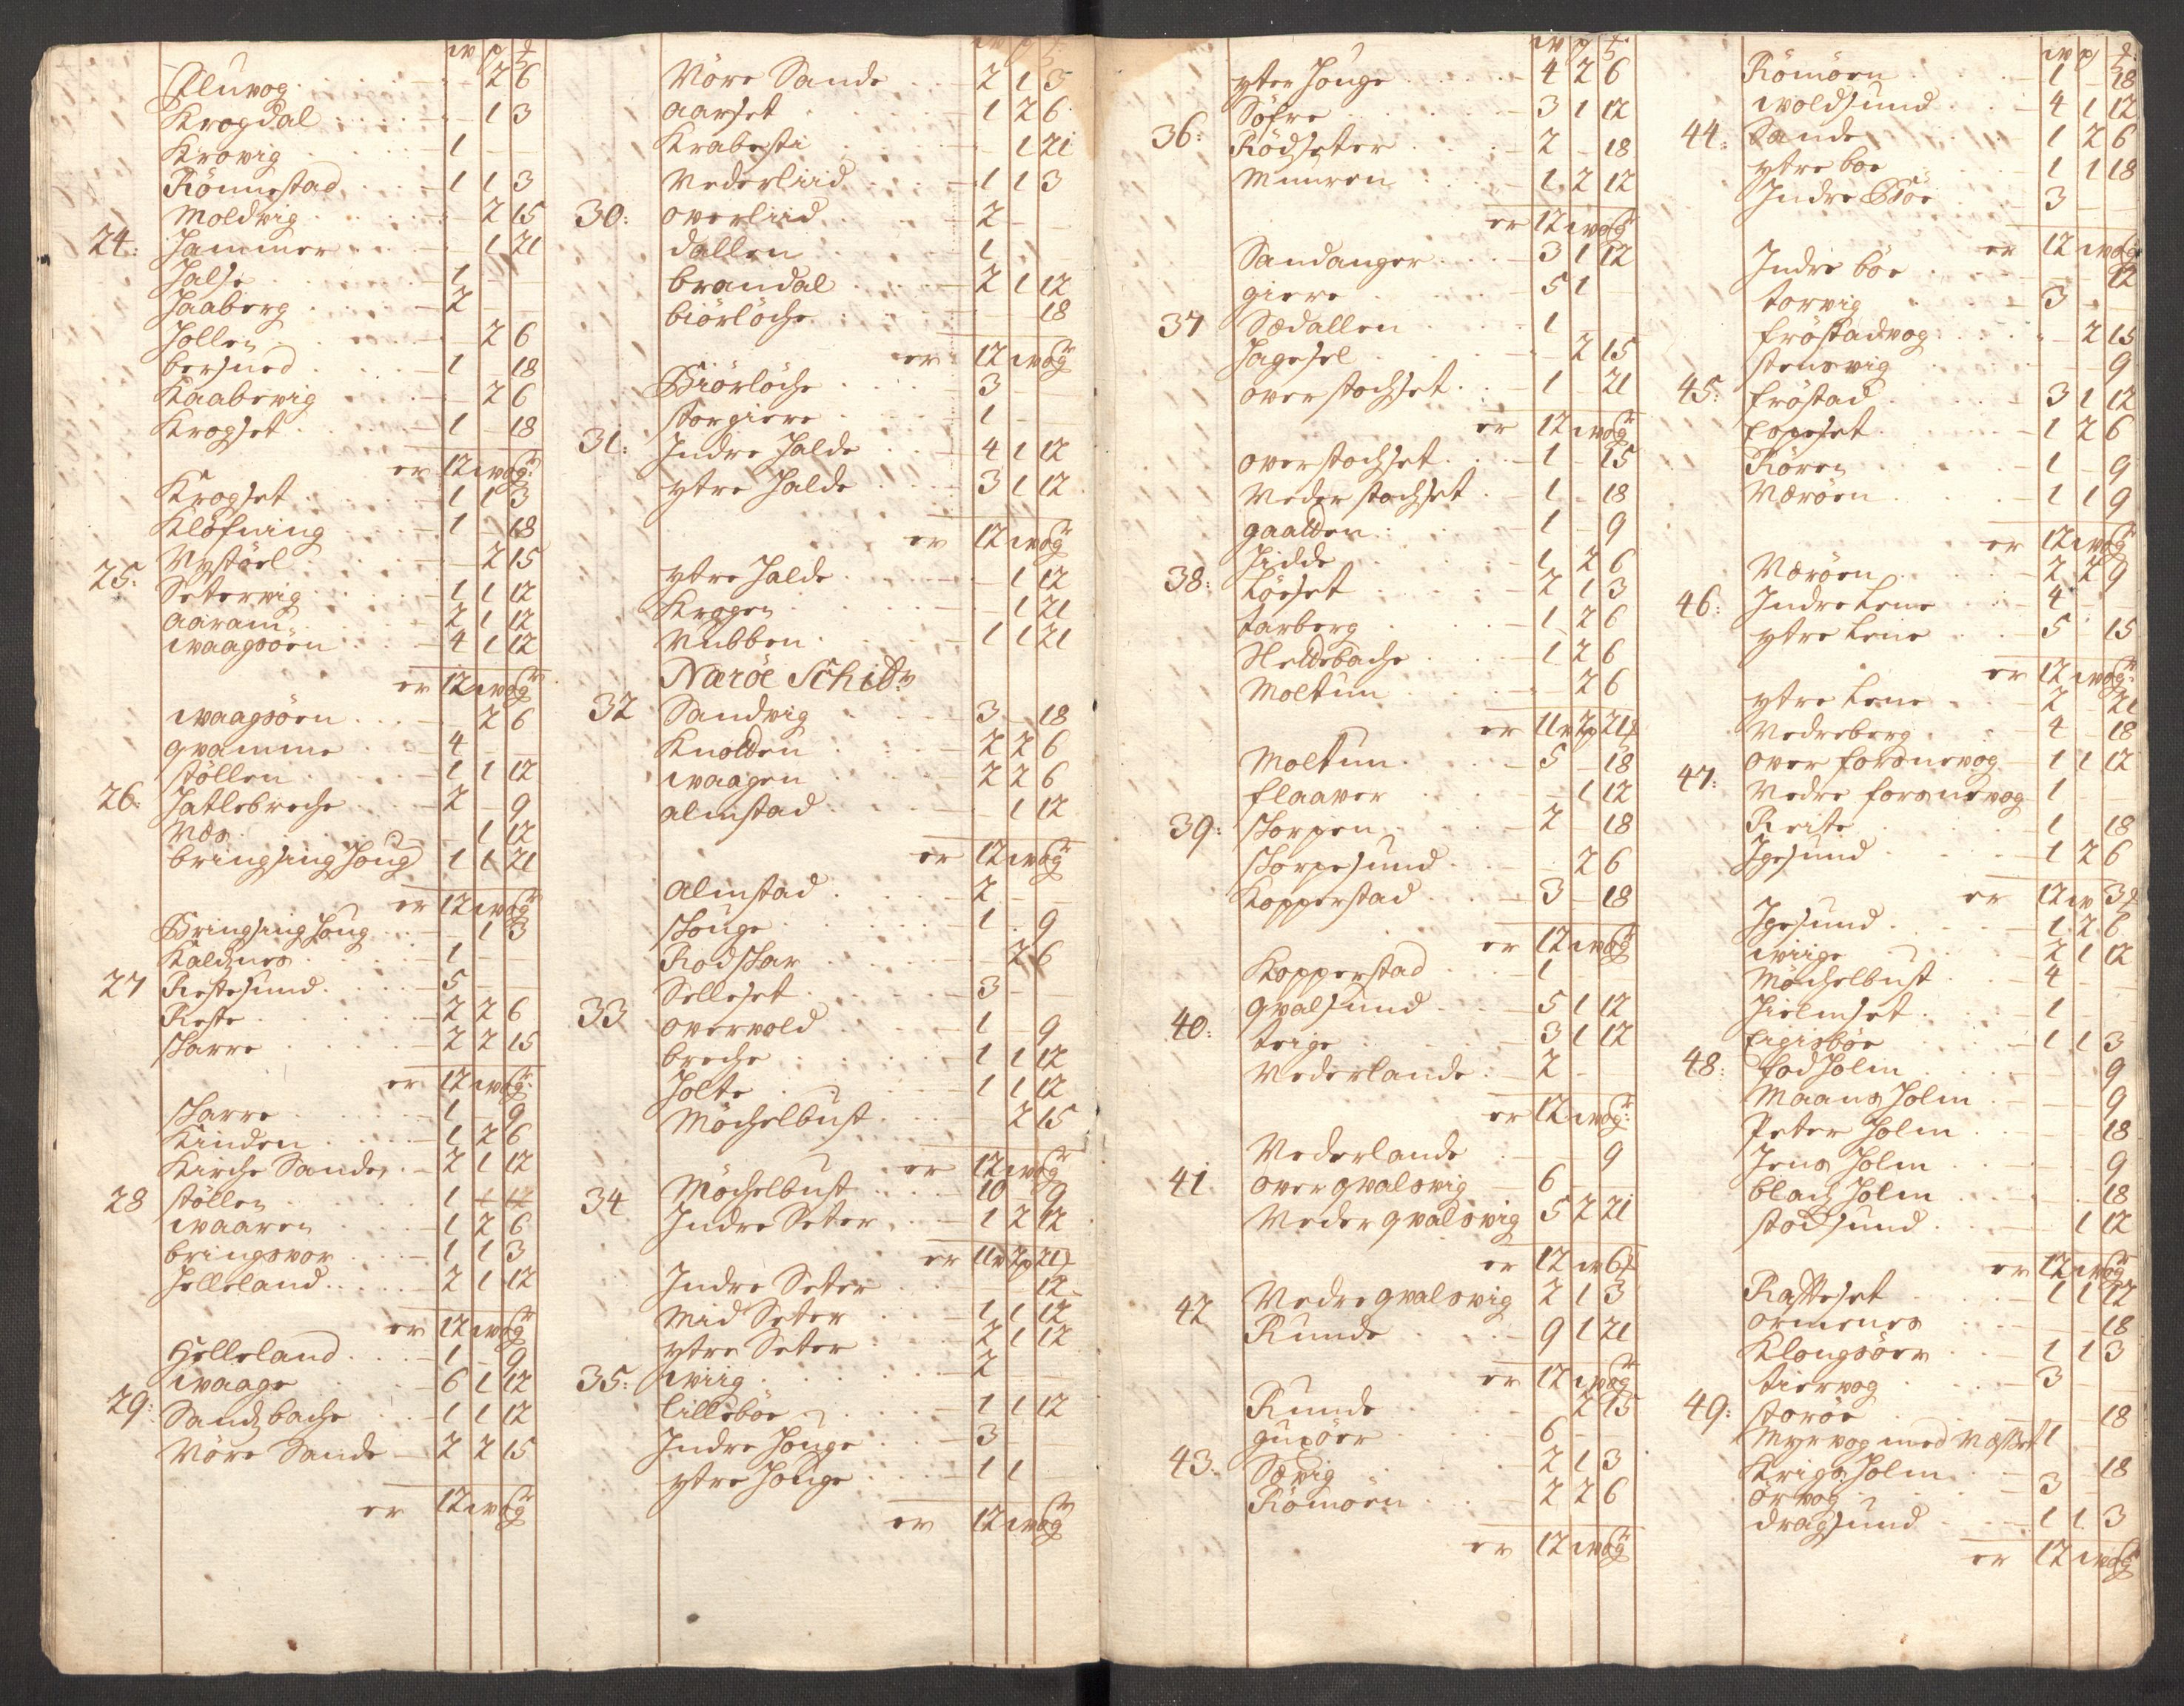 w p ℔
Fluvog - 2 6
Krogdal - 1 3
Krovig 1 - -
Rönnestad 1 1 3
Moldvig - 2 15
24: Hammer - 1 21
Halse 1 - -
Haaberg 2 - -
Hollen - 2 6
bersued 1 - 18
Kaabevig - 2 6
Krogset 1 - 18
er 12 wogr
Krogset 1 1 3
Klöfning 1 - 18
Nystöel - 2 15
25: Setervig 1 1 12
aaram 2 1 12
waagsöen 4 1 12
er 12 wogr
waagsöen - 2 6
gvamme 4 - -
stöllen 1 1 12
26: Hatlebreche 2 - 9
Næs - 1 12
bringsinghoug 1 1 21
er 12 wogr
Bringsinghoug - 1 3
Kaldnes 1 - -
27 Restesund 5 - -
Reste 2 2 6
skarre 2 2 15
er 12 wogr:
skarre 1 - 9
Kinden 1 2 6
Kirche Sande 2 1 12
28 stöllen 1
waaren 1 2 6
bringsvor 1 1 3
Helleland 2 1 12
er 12 wogr
Helleland 1 - 9
waage 6 1 12
29: Sandsbache 1 1 12
Nöre Sande 2 2 15
er 12 wogr
w p ℔
Nöre Sande 2 1 3
aarset 1 2 6
Krabesti - 1 21
Nederliid 1 1 3
30: overliid 2 - -
dallen 1 - -
brandal 2 1 12
biörlöche - - 18
er 12 wogr
Biörlöche 3 - -
storgiere 1 - -
31: Indre Halde 4 1 12
ytre Halde 3 1 12
er 12 wogr
ytre Halde - 1 12
Krogen - 1 21
Nubben 1 1 21
Næröe Schibr
32 Sandvig 3 - 18
Knolden 2 2 6
waagen 2 2 6
almstad - 1 12
er 12 wogr
Almstad 2 - -
skouge 1 - 9
Rodskar - 2 6
Selleset 3 - -
33 overvold 1 - 9
breche 1 1 12
Holte 1 1 12
Möchelbust - 2 15
er 12 wogr
34 Möchelbust 10 - 9
Indre Seter 1 2 12
er 11 w 2 p 21 ℔
Indre Seter - - 12
Mid Seter 1 1 12
ytre Seter 2 1 12
35: wiig 2 - -
lilleböe 1 1 12
Indre Houge 3 - -
ytre Houge 1 1 -
er 12 wogr
w p ℔
ytter Houge 4 2 6
Söfre 3 1 12
36: Rödseter 2 - 18
Muuren 1 2 12
er 12 wogr
Sandanger 3 1 12
giere 5 1 -
37 Sædallen 1 - -
Hagesel - 2 15
overstochset 1 - 21
er 12 wogr
overstochset 1 - 15
Neder stochset 1 - 18
gaalden 1 - 9
Hidde 1 2 6
38: Löeset 2 1 3
tarberg 1 2 6
Heltebache 1 2 6
Moltun - 2 6
er 11 w 2 p 21 ℔
Moltun 5 - 18
flaaver - 1 12
39: skorpen 2 - 18
skorpesund - 2 6
Kopperstad 3 - 18
er 12 wogr
Kopperstad 1 - -
qvalsund 5 1 12
40: teige 3 1 12
Nederlande 2 - -
er 12 wogr:
Nederlande - - 9
41 over qvalsvig 6 - -
Neder qvalsvig 5 2 21
er 12 w 6 ℔
42 Nedre qvalsvig 2 1 3
Runde 9 1 21
er 12 wogr
Runde - 2 15
guxöer 6 - -
43: Sævig 2 1 3
Römoen 2 2 6
er 12 wogr
w p ℔
Römöen 1 - 18
woldsund 4 1 12
44: Sande 1 2 6
ytre boe 1 1 18
Indre Böe 3 - -
er 12 wogr
Indre böe - - 12
torvig 3 - -
fröstadvog - 2 15
stensvig - - 9
45: fröstad 3 1 12
Expeset 1 2 6
Rören 1 - 9
Nærøen 1 1 9
er 12 wogr
Nærøen 2 2 9
46: Indre Lene 4 - -
ytre Lene 5 - 15
er 12 wogr:
ytre Lene 2 - 21
Nedreberg 4 - 18
over forsnevog 1 1 12
47: Nedre forsnevog 1 - -
Reite 1 - 18
Igesund 1 2 6
er 12 w 3 ℔
Igesund 1 2 6
wiige 2 1 12
Möchelbust 4 - -
Hielmset 1 - -
Eigisböe 1 1 3
48: fodholm - - 9
Maansholm - - 9
Peter Holm - - 18
Jens Holm - - 9
blachholm - - 18
stocksund - 1 12
er 12 wogr
Ratteset 1 1 12
ormenes - - 18
Klongsöer 1 1 3
tiervog 3 - -
49: storöe - - 18
Myrvog med Næsset 1
Krigsholm - - 18
örvog 3 - -
dragsund 1 1 3
er 12 wogr